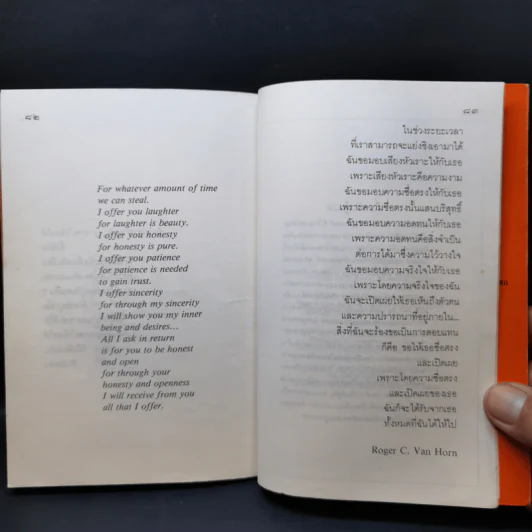 ๘๒
For whatever amount of time
we can steal.
I offer you laughter
for laughter is beauty.
I offer you honesty
for honesty is pure.
I offer you patience
for patience is needed
to gain trust.
I offer sincerity
for through my sincerity
I will show you my inner
being and desires...
All I ask in return
is for you to be honest
and open
for through your
honesty and openness
I will receive from you
all that I offer.
๘๓
ในช่วงระยะเวลา
ที่เราสามารถจะแย่งชิงเอามาได้
ฉันขอมอบเสียงหัวเราะให้กับเธอ
เพราะเสียงหัวเราะคือความงาม
ฉันขอมอบความซื่อตรงให้กับเธอ
เพราะความซื่อตรงนั้นแสนบริสุทธิ์
ฉันขอมอบความอดทนให้กับเธอ
เพราะความอดทนคือสิ่งจำเป็น
ต่อการได้มาซึ่งความไว้วางใจ
ฉันขอมอบความจริงใจให้กับเธอ
เพราะโดยความจริงใจของฉัน
ฉันจะเปิดเผยให้เธอเห็นถึงตัวตน
และความปรารถนาที่อยู่ภายใน...
สิ่งที่ฉันจะร้องขอเป็นการตอบแทน
ก็คือ ขอให้เธอซื่อตรง
และเปิดเผย
เพราะโดยความซื่อตรง
และเปิดเผยของเธอ
ฉันก็จะได้รับจากเธอ
ทั้งหมดที่ฉันได้ให้ไป
Roger C. Van Horn